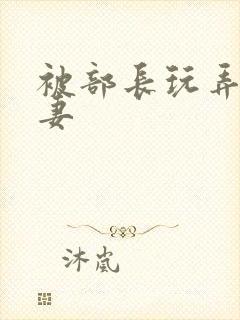 被部長玩弄
妻
沐嵐